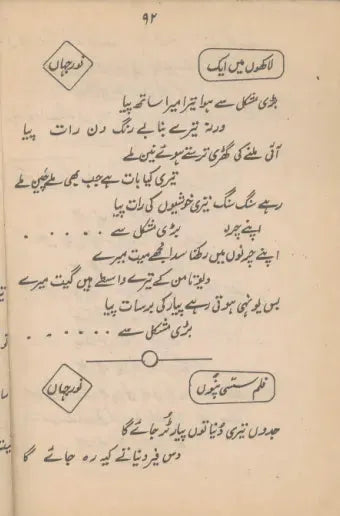 ۹۲
لاکھوں میں ایک
نورجہاں
بڑی مشکل سے ہوا تیرا میرا ساتھ پیا
ورنہ تیرے بنا بے رنگ دن رات پیا
آئی ملنے کی گھڑی ترستے ہوئے نین ملے
تیری کیا بات ہے جب بھی ملے چین ملے
رہے سنگ سنگ تیری خوشیوں کی رات پیا
بڑی مشکل سے ۔ ۔ ۔ ۔ ۔
اپنے چرنوں میں رکھنا سدا مجھے میت میرے
دیوتا من کے تیرے واسطے ہیں گیت میرے
بس یونہی ہوتی رہے پیار کی برسات پیا
بڑی مشکل سے ۔ ۔ ۔ ۔ ۔ ۔
فلم سسی پنوں
نورجہاں
جدوں تیری دنیا توں پیار ٹر جائے گا
دس فیر دنیا تے کیہ رہ جائے گا